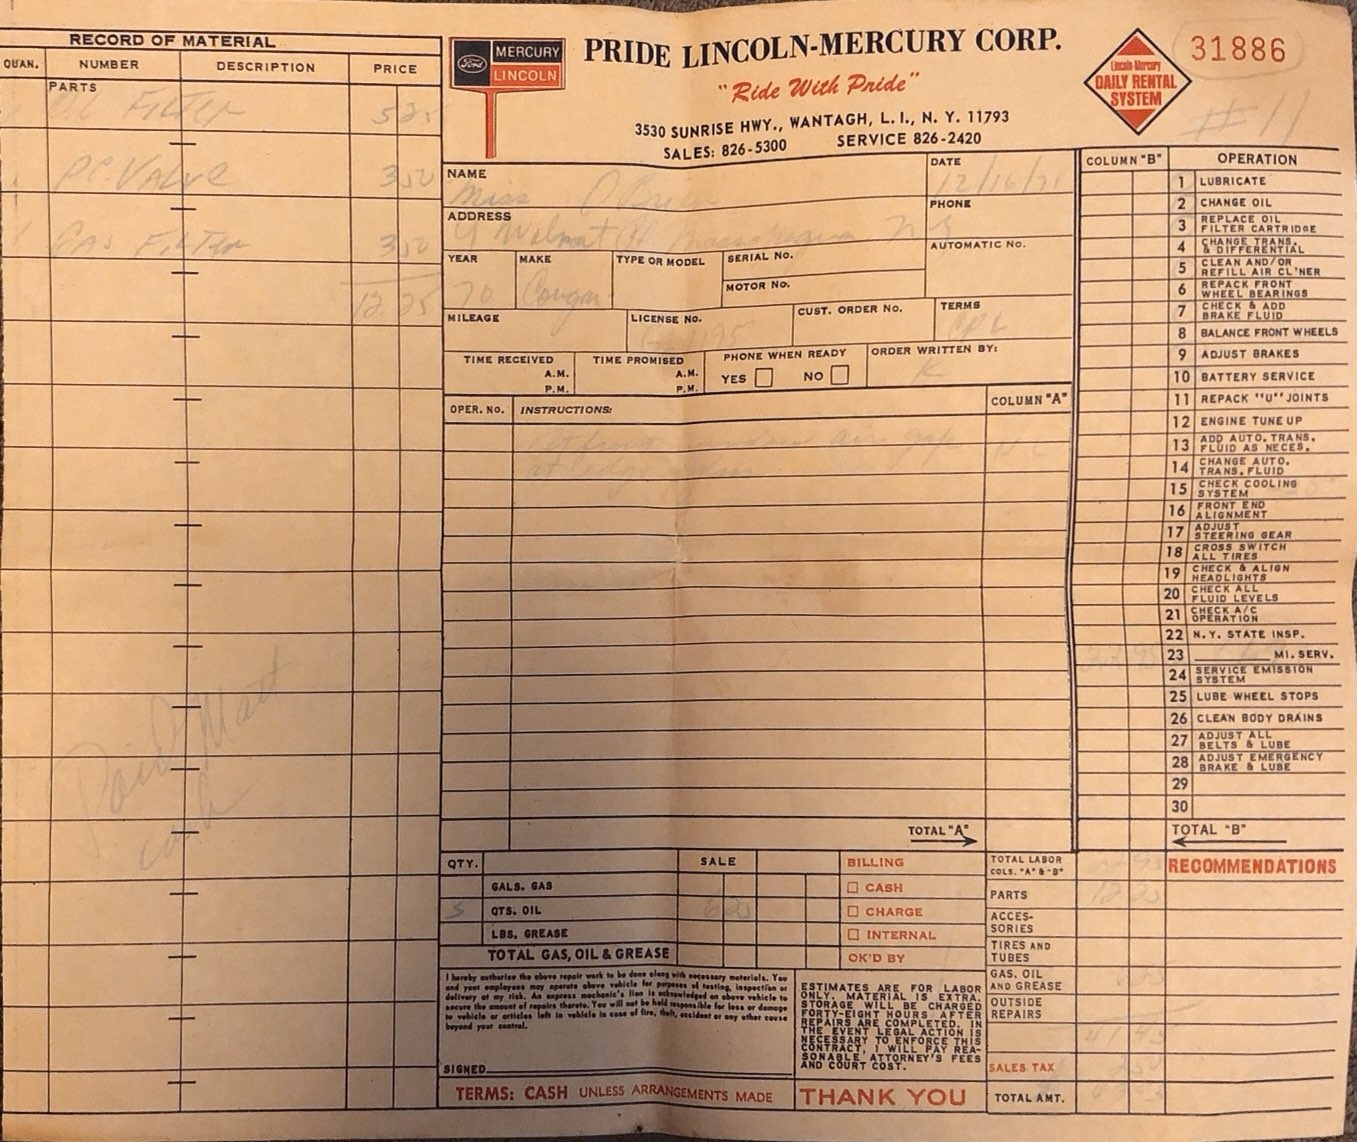 RECORD OF MATERIAL
QUAN. NUMBER DESCRIPTION PRICE
PARTS
OIL FILTER 5 25
PC. VALVE 3 50
GAS FILTER 3 50
12.25
Paid Matt
cash
Ford MERCURY
LINCOLN
PRIDE LINCOLN-MERCURY CORP.
"Ride With Pride"
3530 SUNRISE HWY., WANTAGH, L. I., N. Y. 11793
SALES: 826-5300 SERVICE 826-2420
Lincoln-Mercury
DAILY RENTAL
SYSTEM
31886
#11
NAME
Miss O'Brien
DATE
12/16/71
ADDRESS
Walnut
PHONE
YEAR MAKE TYPE OR MODEL SERIAL NO.
AUTOMATIC NO.
70 Cougar
MOTOR NO.
MILEAGE LICENSE NO. CUST. ORDER NO. TERMS
TIME RECEIVED TIME PROMISED PHONE WHEN READY ORDER WRITTEN BY:
A.M. A.M. YES NO K
P.M. P.M.
OPER. NO. INSTRUCTIONS: COLUMN "A"
air
at edge
TOTAL "A"
COLUMN "B" OPERATION
1 LUBRICATE
2 CHANGE OIL
3 REPLACE OIL FILTER CARTRIDGE
4 CHANGE TRANS. & DIFFERENTIAL
5 CLEAN AND/OR REFILL AIR CL'NER
6 REPACK FRONT WHEEL BEARINGS
7 CHECK & ADD BRAKE FLUID
8 BALANCE FRONT WHEELS
9 ADJUST BRAKES
10 BATTERY SERVICE
11 REPACK "U" JOINTS
12 ENGINE TUNE UP
13 ADD AUTO. TRANS. FLUID AS NECES.
14 CHANGE AUTO. TRANS. FLUID
15 CHECK COOLING SYSTEM
16 FRONT END ALIGNMENT
17 ADJUST STEERING GEAR
18 CROSS SWITCH ALL TIRES
19 CHECK & ALIGN HEADLIGHTS
20 CHECK ALL FLUID LEVELS
21 CHECK A/C OPERATION
22 N.Y. STATE INSP.
23 ______ MI. SERV.
24 SERVICE EMISSION SYSTEM
25 LUBE WHEEL STOPS
26 CLEAN BODY DRAINS
27 ADJUST ALL BELTS & LUBE
28 ADJUST EMERGENCY BRAKE & LUBE
29
30
TOTAL "B"
QTY. SALE BILLING
GALS. GAS CASH
5 QTS. OIL CHARGE
LBS. GREASE INTERNAL
TOTAL GAS, OIL & GREASE OK'D BY
TOTAL LABOR
COLS. "A" & "B"
PARTS 12 25
ACCES-
SORIES
TIRES AND
TUBES
GAS. OIL
AND GREASE
OUTSIDE
REPAIRS
SALES TAX
TOTAL AMT.
RECOMMENDATIONS
I hereby authorize the above repair work to be done along with necessary materials. You
and your employees may operate above vehicle for purposes of testing, inspection or
delivery at my risk. An express mechanic's lien is acknowledged on above vehicle to
secure the amount of repairs thereto. You will not be held responsible for loss or damage
to vehicle or articles left in vehicle in case of fire, theft, accident or any other cause
beyond your control.
SIGNED
ESTIMATES ARE FOR LABOR
ONLY, MATERIAL IS EXTRA.
STORAGE WILL BE CHARGED
FORTY-EIGHT HOURS AFTER
REPAIRS ARE COMPLETED. IN
THE EVENT LEGAL ACTION IS
NECESSARY TO ENFORCE THIS
CONTRACT, I WILL PAY REA-
SONABLE ATTORNEY'S FEES
AND COURT COST.
TERMS: CASH UNLESS ARRANGEMENTS MADE
THANK YOU